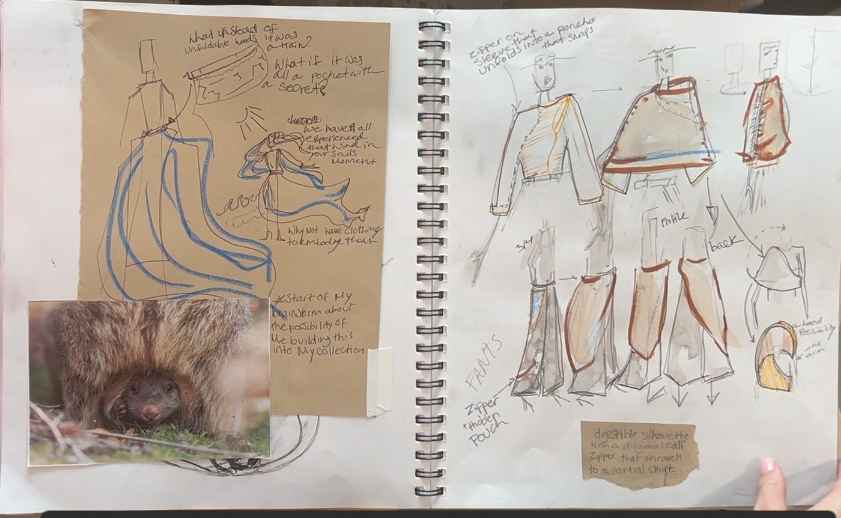 What instead of
unfoldable hoods it was
a train?
What if it was
all a pocket with
a secret?
We have all
experienced
that wind in
your sails
Moment
Why Not have clothing
to embody that
Start of My
brainstorm about
the possibility of
Me building this
into My collection
Zipper on
sleeve that
unfolds into a poncho
that snaps
3/4
Profile
back
PANTS
Zipper
hidden
Pouch
hood
Possibility
over
arm
digestible silhouette
with a diagonal calf
Zipper that unravels
to a partial skirt.